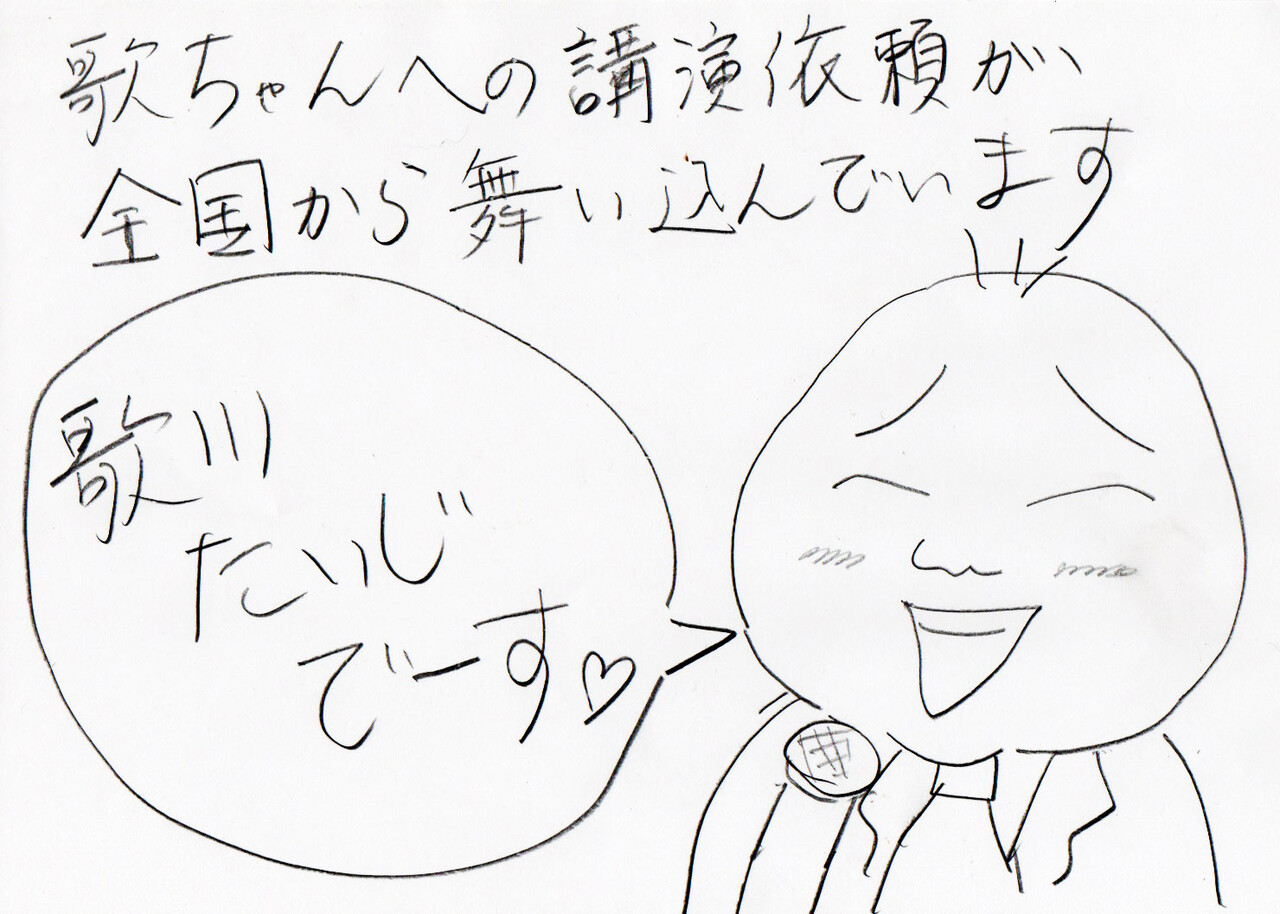 歌ちゃんへの講演依頼が
全国から舞い込んでいます
歌川
たいじ
でーす♡